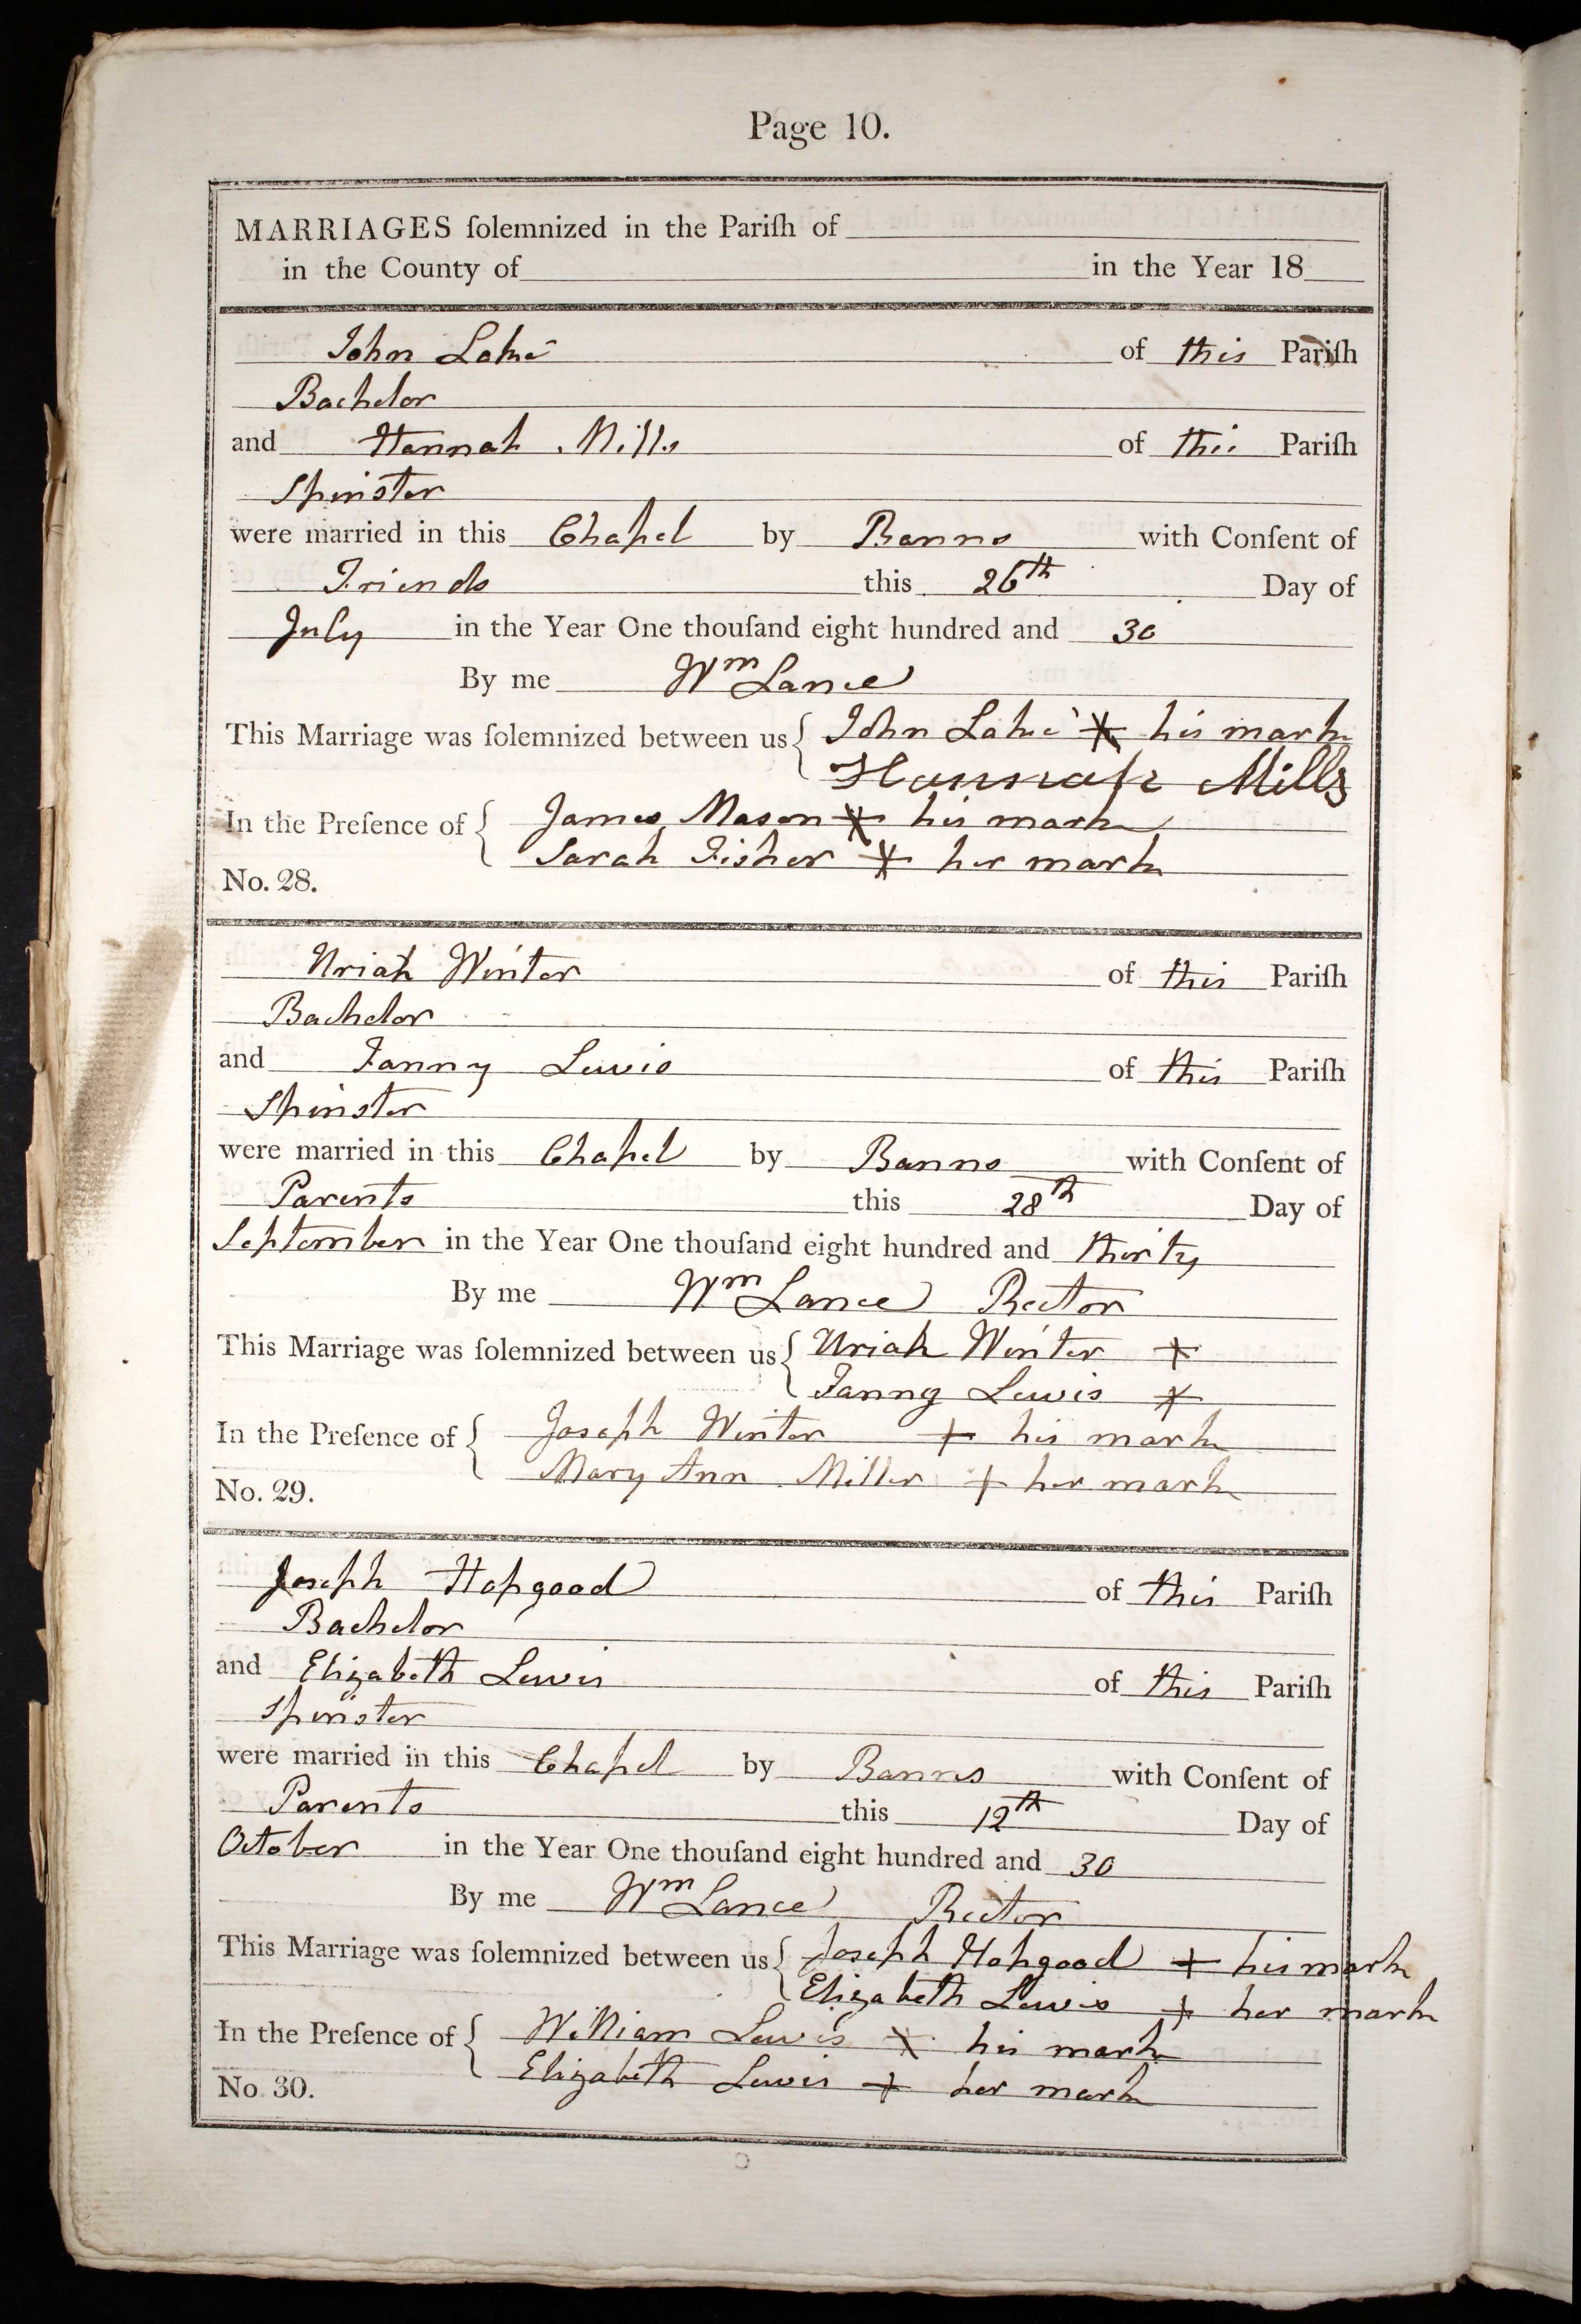 Page 10.
MARRIAGES ſolemnized in the Pariſh of
in the County of in the Year 18
John Lake of this Pariſh
Bachelor
and Hannah Mills of this Pariſh
Spinster
were married in this Chapel by Banns with Conſent of
Friends this 26th Day of
July in the Year One thouſand eight hundred and 30
By me Wm Lance
This Marriage was ſolemnized between us { John Lake X his mark
Hannah Mills
In the Preſence of { James Mason X his mark
Sarah Fisher X her mark
No. 28.
Uriah Winter of this Pariſh
Bachelor
and Fanny Lewis of this Pariſh
Spinster
were married in this Chapel by Banns with Conſent of
Parents this 28th Day of
September in the Year One thouſand eight hundred and thirty
By me Wm Lance Rector
This Marriage was ſolemnized between us { Uriah Winter X
Fanny Lewis X
In the Preſence of { Joseph Winter + his mark
Mary Ann Miller + her mark
No. 29.
Joseph Hapgood of this Pariſh
Bachelor
and Elizabeth Lewis of this Pariſh
Spinster
were married in this Chapel by Banns with Conſent of
Parents this 12th Day of
October in the Year One thouſand eight hundred and 30
By me Wm Lance Rector
This Marriage was ſolemnized between us { Joseph Hapgood + his mark
Elizabeth Lewis + her mark
In the Preſence of { William Lewis X his mark
Elizabeth Lewis + her mark
No. 30.